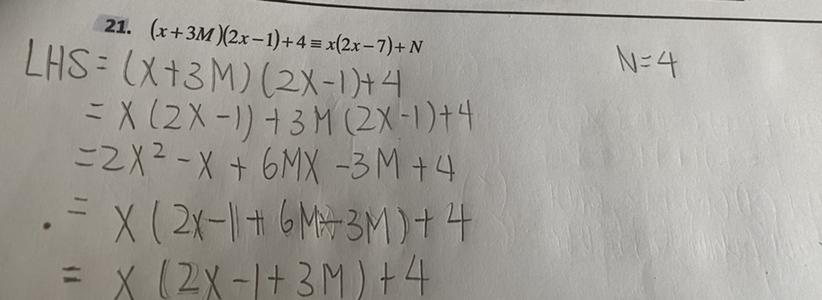 21. (x+3M)(2x−1)+4≡x(2x−7)+N
LHS = (X+3M)(2X-1)+4
N=4
= X(2X-1)+3M(2X-1)+4
=2X²-X+6MX-3M+4
= X(2x-1+6M-3M)+4
= X(2X-1+3M)+4